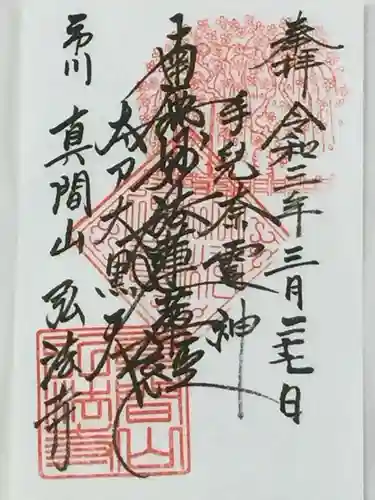 奉拝 令和三年三月二七日
手児奈霊神
南無妙法蓮華経
太刀大黒天
市川
真間山 弘法寺